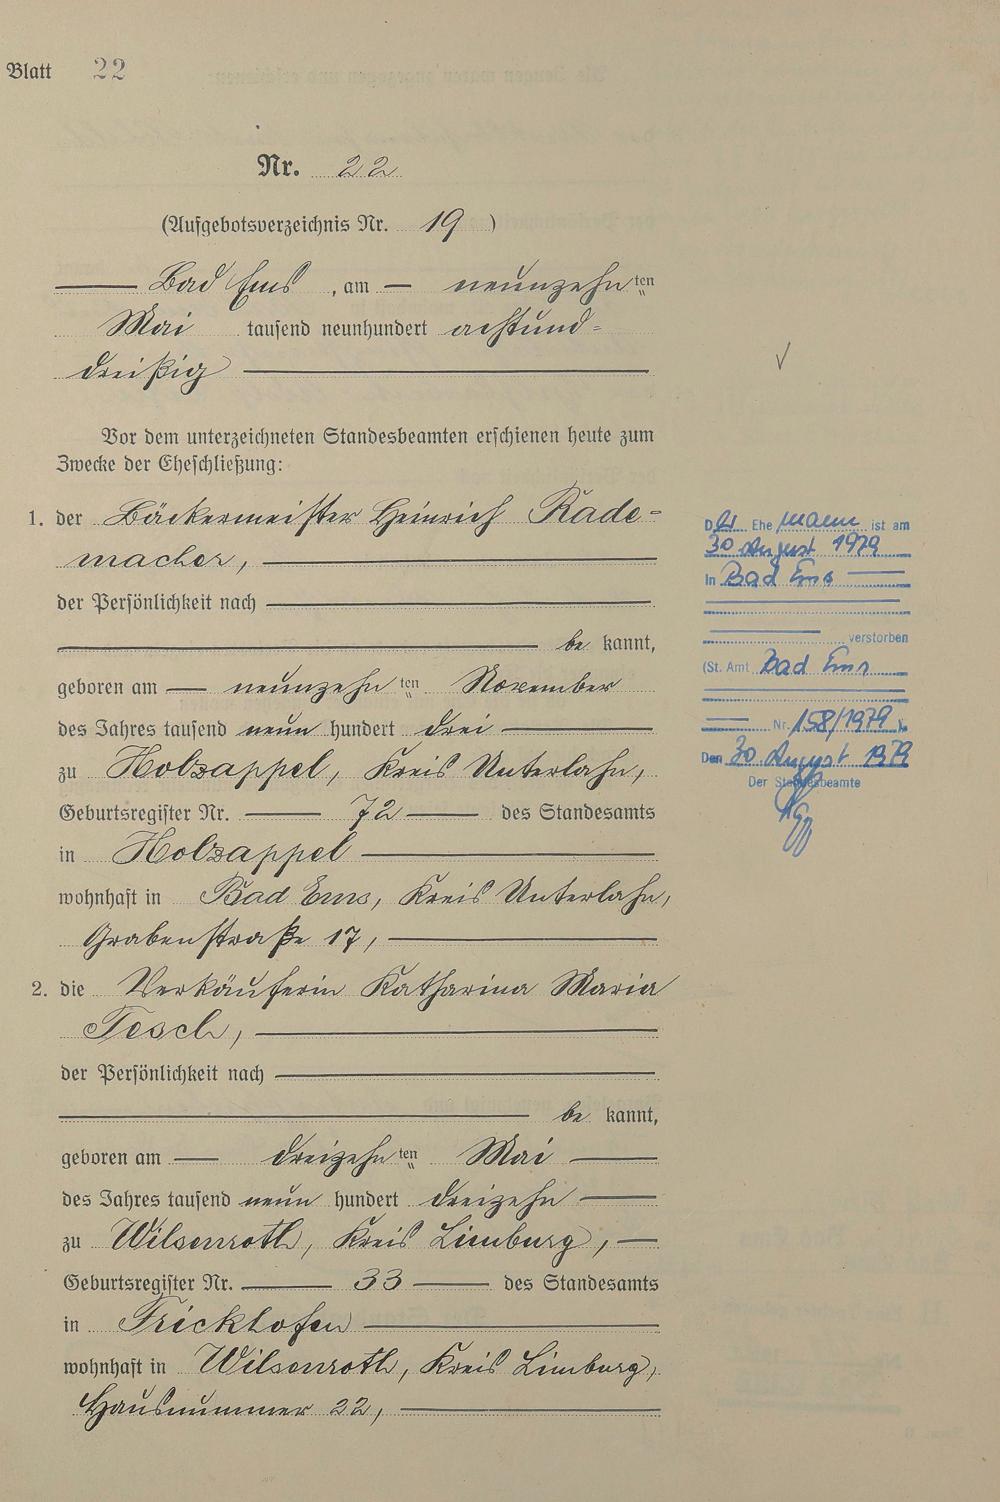 Blatt 22
Nr. 22
(Aufgebotsverzeichnis Nr. 19 )
Bad Ems, am neunzehnten
Mai tausend neunhundert achtund-
dreißig
Vor dem unterzeichneten Standesbeamten erschienen heute zum
Zwecke der Eheschließung:
1. der Bäckermeister Heinrich Rade-
macher,
der Persönlichkeit nach
be kannt,
geboren am neunzehnten November
des Jahres tausend neun hundert drei
zu Holzappel, Kreis Unterlahn,
Geburtsregister Nr. 72 des Standesamts
in Holzappel
wohnhaft in Bad Ems, Kreis Unterlahn,
Grabenstraße 17,
2. die Verkäuferin Katharina Maria
Tesch,
der Persönlichkeit nach
be kannt,
geboren am dreizehnten Mai
des Jahres tausend neun hundert dreizehn
zu Wilsenroth, Kreis Limburg,
Geburtsregister Nr. 33 des Standesamts
in Frickhofen
wohnhaft in Wilsenroth, Kreis Limburg,
Hausnummer 22,
Der Ehemann ist am
30 August 1979
in Bad Ems
verstorben
(St. Amt Bad Ems
Nr. 158/1979 ).
Den 30. August 1979
Der Standesbeamte